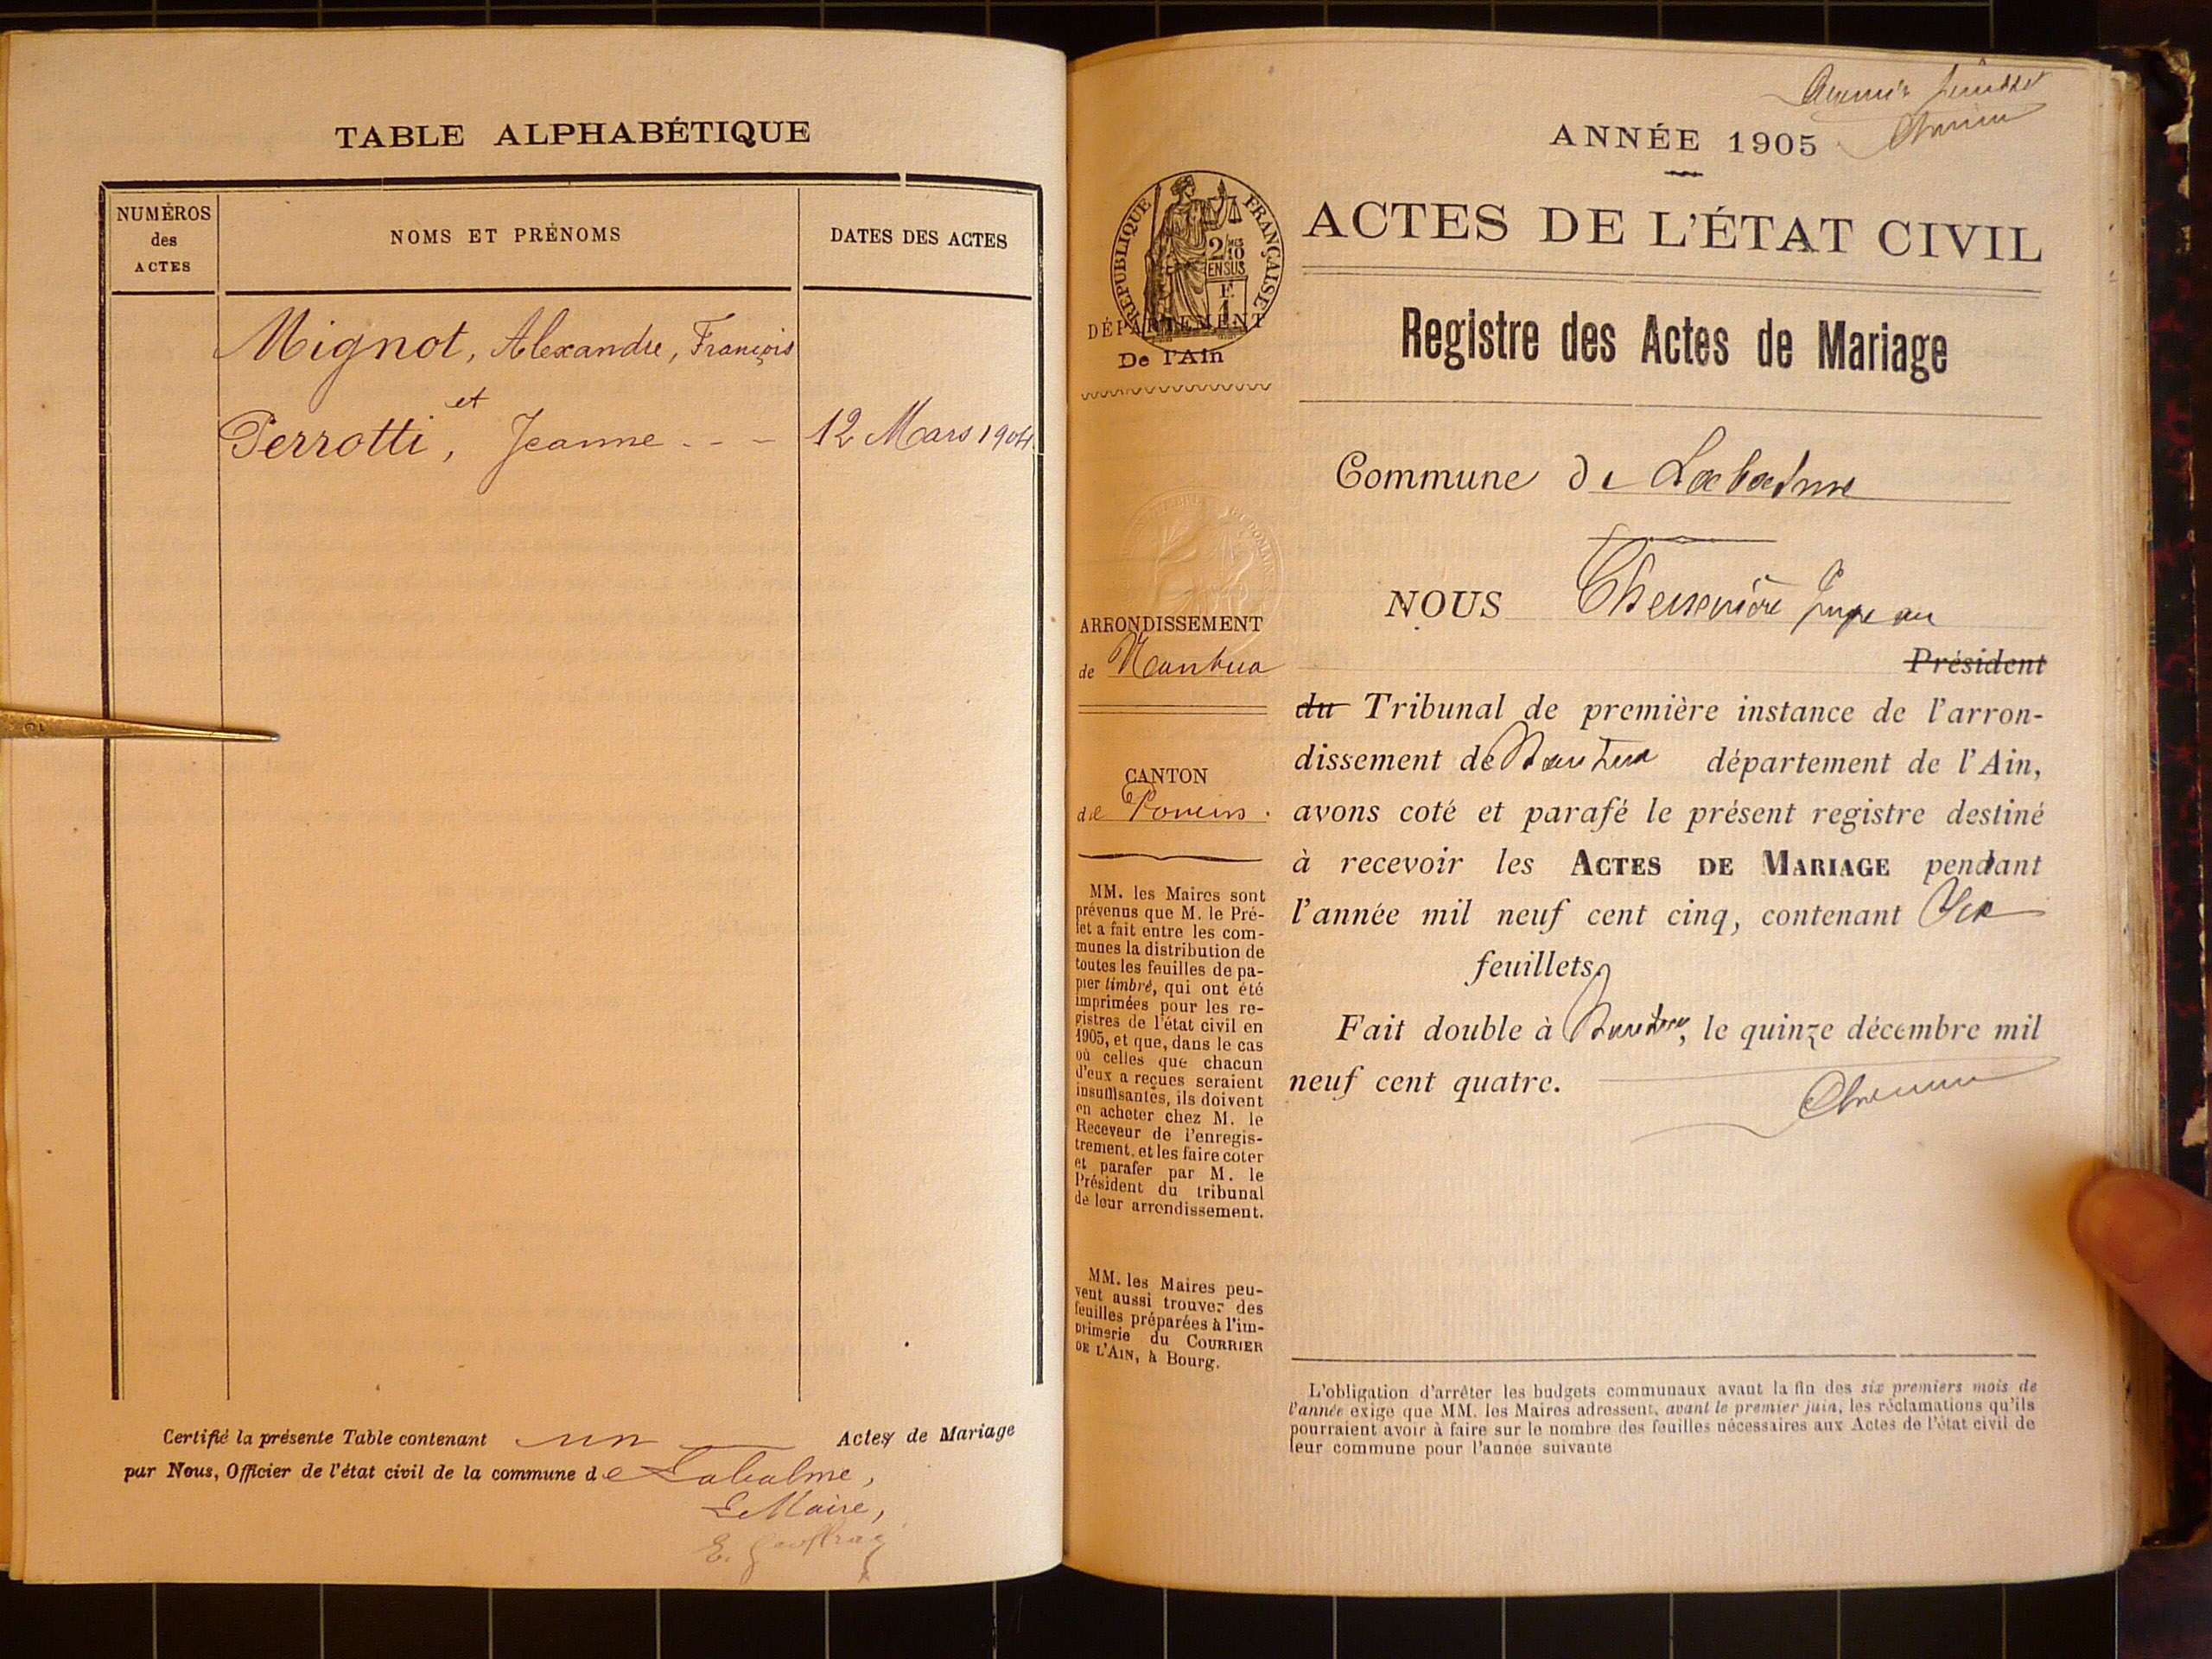 TABLE ALPHABÉTIQUE
NUMÉROS
des
ACTES
NOMS ET PRÉNOMS
DATES DES ACTES
Mignot, Alexandre, François
et
Perrotti, Jeanne - - -
12 Mars 1904
Certifié la présente Table contenant un Actes de Mariage
par Nous, Officier de l'état civil de la commune de Labalme,
Le Maire,
E. Geoffray
Premier feuillet
ANNÉE 1905
ACTES DE L'ÉTAT CIVIL
Registre des Actes de Mariage
RÉPUBLIQUE FRANÇAISE
2/10
EN SUS
DÉPARTEMENT
De l'Ain
Commune de Labalme
NOUS juge au
Président
du Tribunal de première instance de l'arron-
dissement de Nantua département de l'Ain,
avons coté et parafé le présent registre destiné
à recevoir les ACTES DE MARIAGE pendant
l'année mil neuf cent cinq, contenant
feuillets.
Fait double à Nantua, le quinze décembre mil
neuf cent quatre.
ARRONDISSEMENT
de Nantua
CANTON
de Poncin.
MM. les Maires sont
prévenus que M. le Pré-
fet a fait entre les com-
munes la distribution de
toutes les feuilles de pa-
pier timbré, qui ont été
imprimées pour les re-
gistres de l'état civil en
1905, et que, dans le cas
où celles que chacun
d'eux a reçues seraient
insuffisantes, ils doivent
en acheter chez M. le
Receveur de l'enregis-
trement, et les faire coter
et parafer par M. le
Président du tribunal
de leur arrondissement.
MM. les Maires peu-
vent aussi trouver des
feuilles préparées à l'im-
primerie du COURRIER
DE L'AIN, à Bourg.
L'obligation d'arrêter les budgets communaux avant la fin des six premiers mois de
l'année exige que MM. les Maires adressent, avant le premier juin, les réclamations qu'ils
pourraient avoir à faire sur le nombre des feuilles nécessaires aux Actes de l'état civil de
leur commune pour l'année suivante